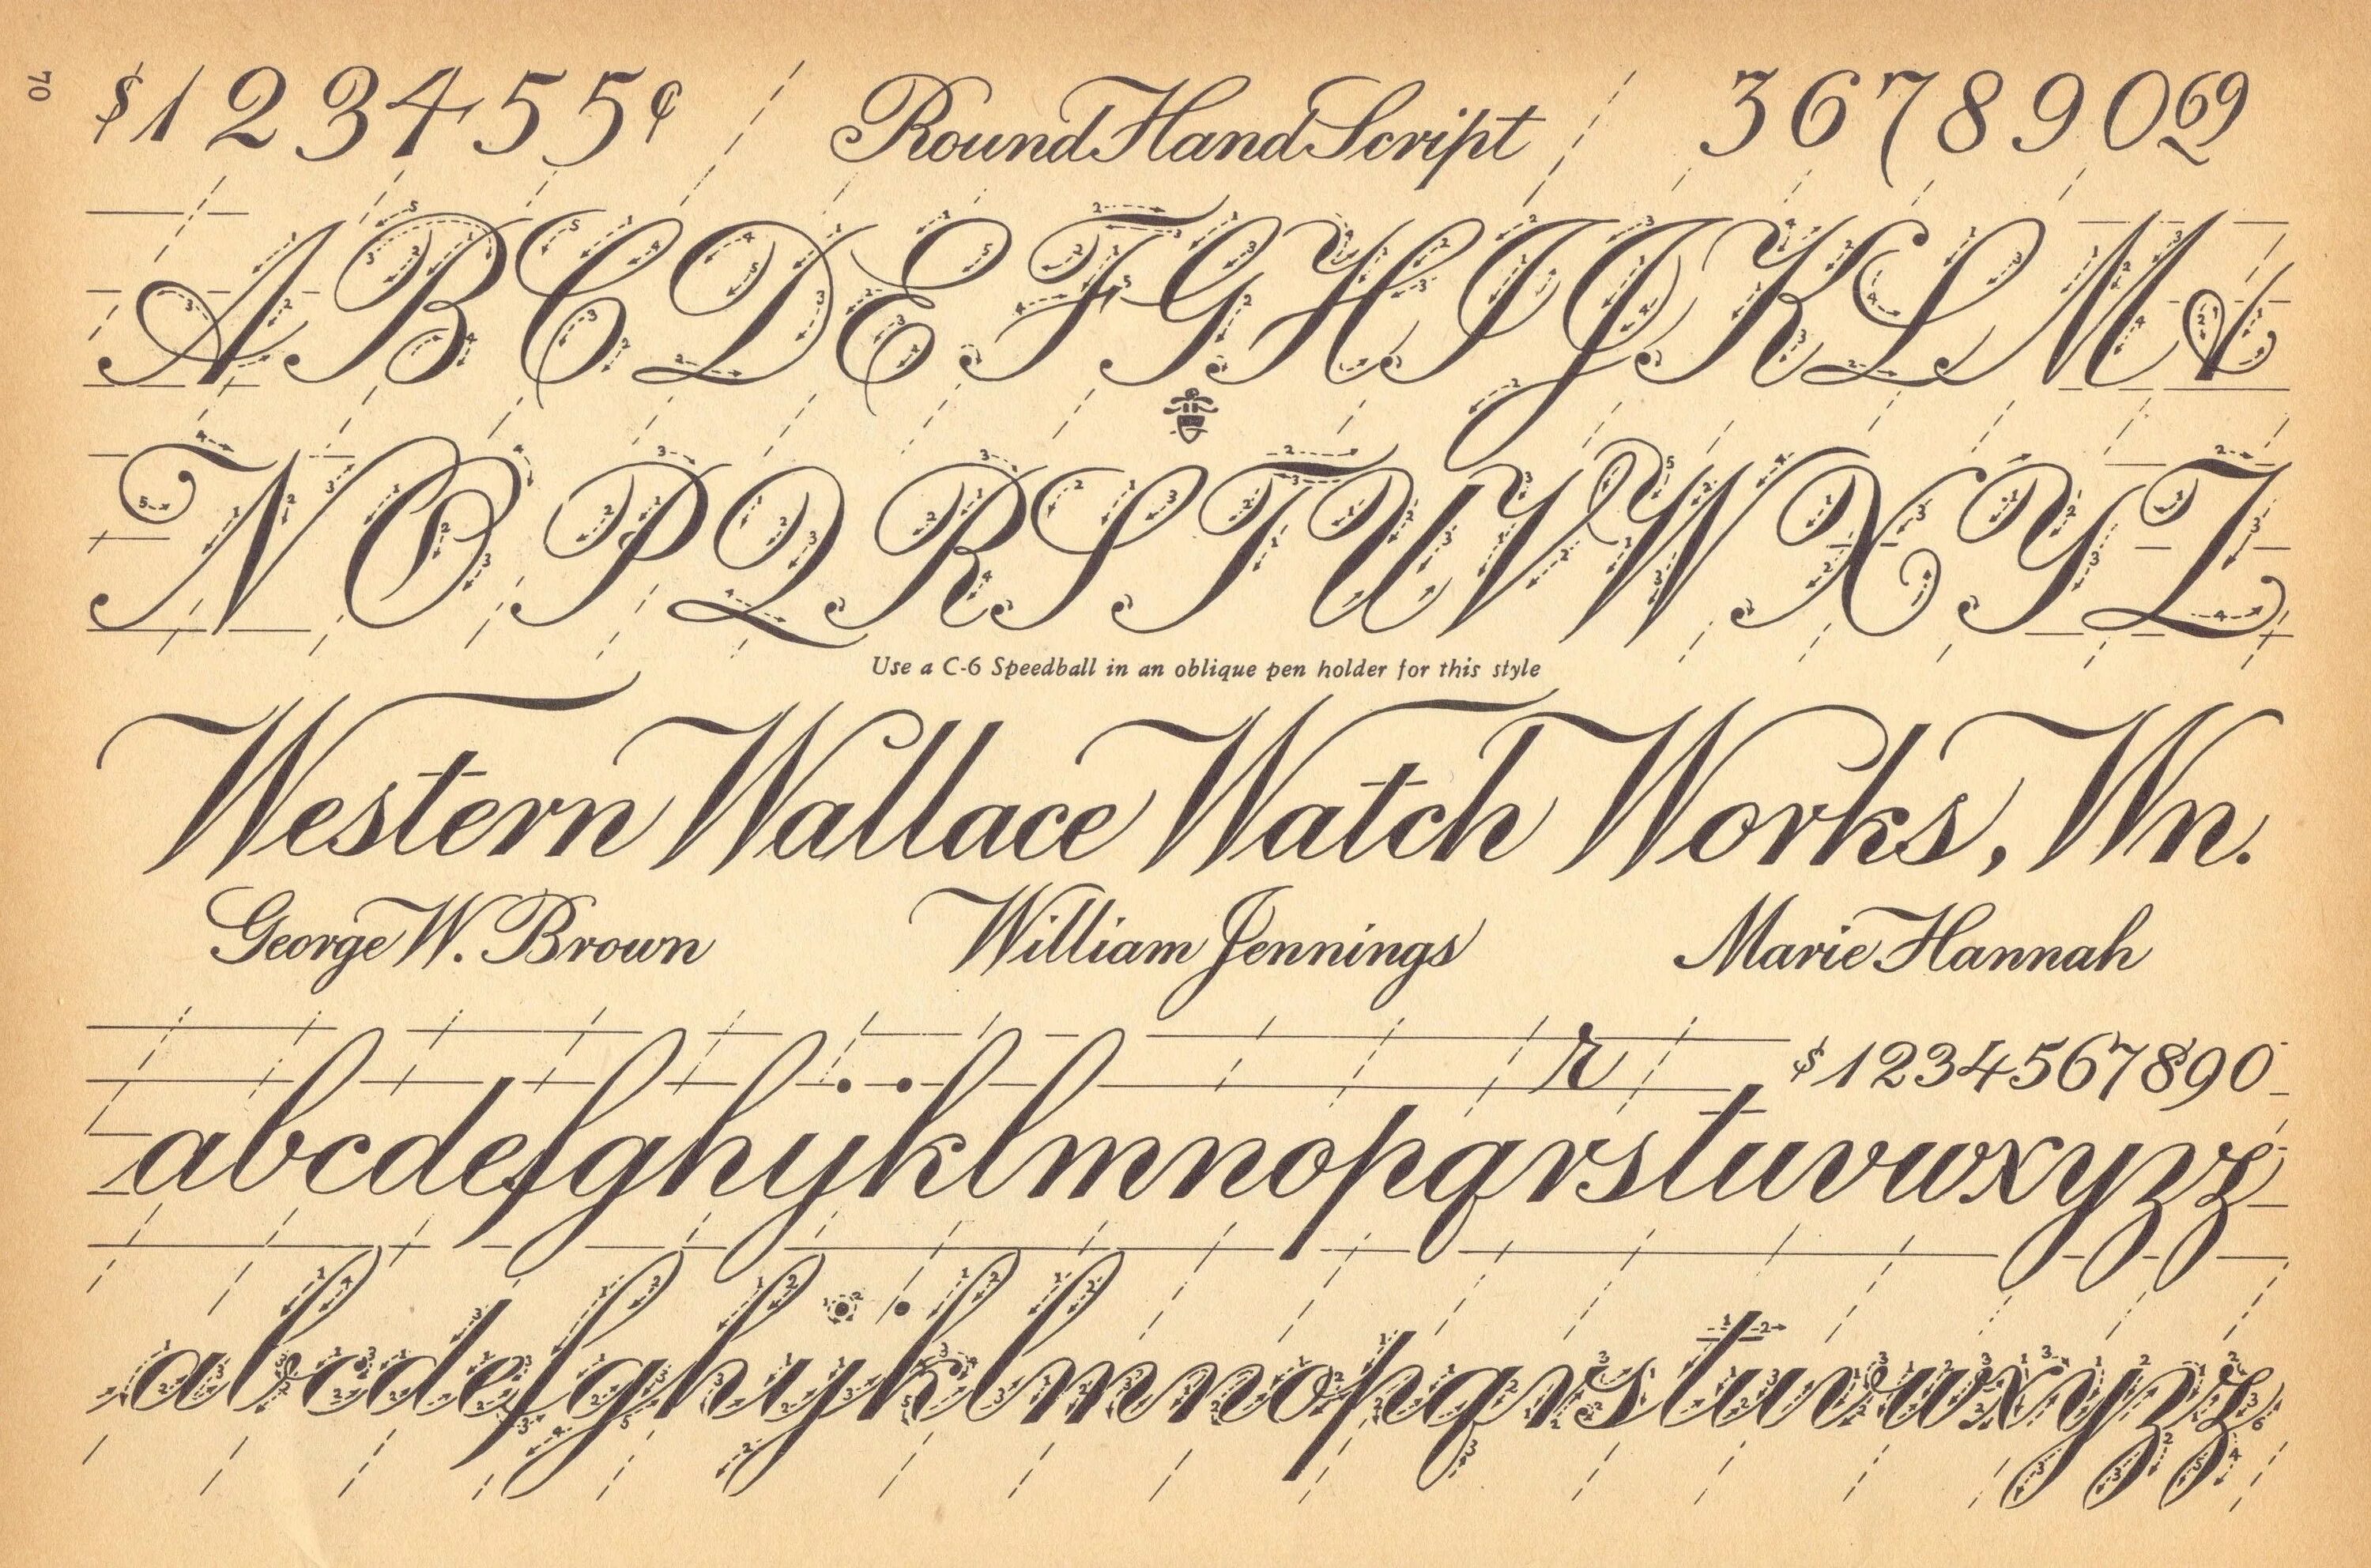 70
$1234555¢ Round Hand Script 36789069
A B C D E F G H I J K L M &
N O P Q R S T U V W X Y Z
Use a C-6 Speedball in an oblique pen holder for this style
Western Wallace Watch Works, Wn.
George W. Brown William Jennings Marie Hannah
r $1234567890
abcdefghijklmnopqrstuvwxyzz
abcdefghijklmnopqrstuvwxyzz